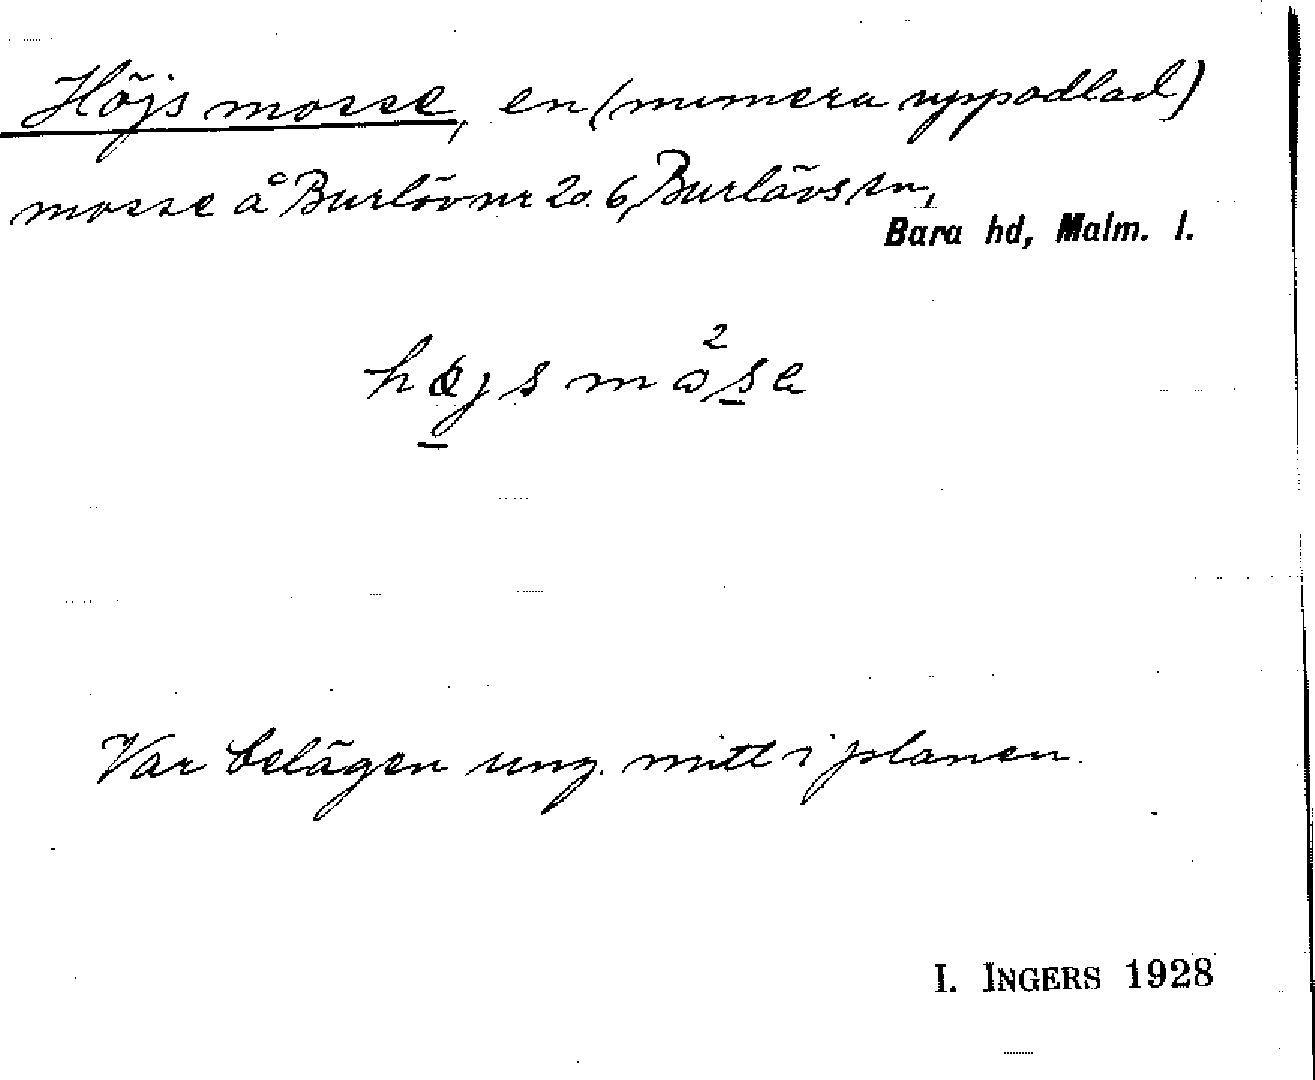 Höjs mosse, en (numera uppodlad)
mosse å Burlöv nr 20.6, Burlövs sn,
Bara hd, Malm. l.
højs mo²se
Var belägen ung. mitt i planen.
I. INGERS 1928